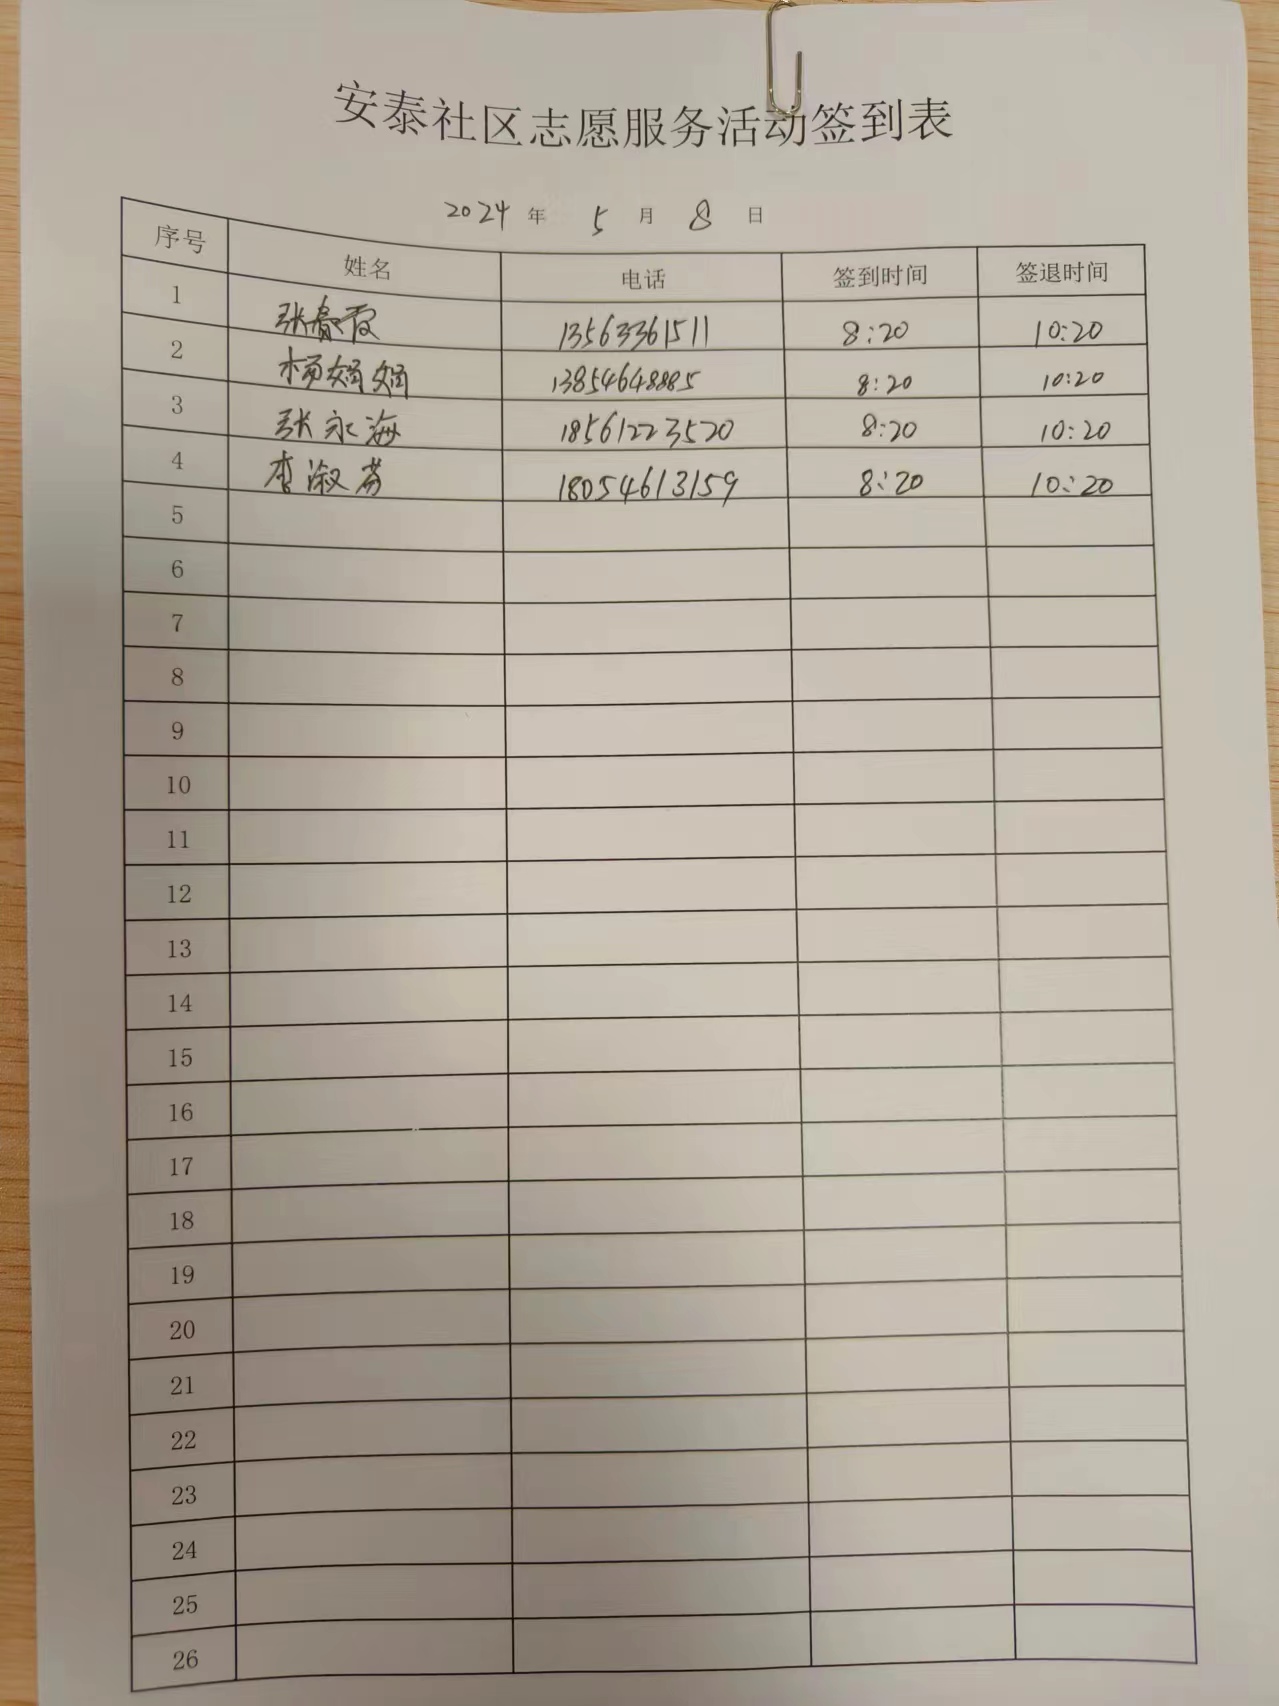 安泰社区志愿服务活动签到表
2024 年 5 月 8 日
序号 姓名 电话 签到时间 签退时间
1 张春霞 13563361511 8:20 10:20
2 杨娟娟 13854648885 8:20 10:20
3 张永海 18561223520 8:20 10:20
4 李淑 18054613159 8:20 10:20
5
6
7
8
9
10
11
12
13
14
15
16
17
18
19
20
21
22
23
24
25
26